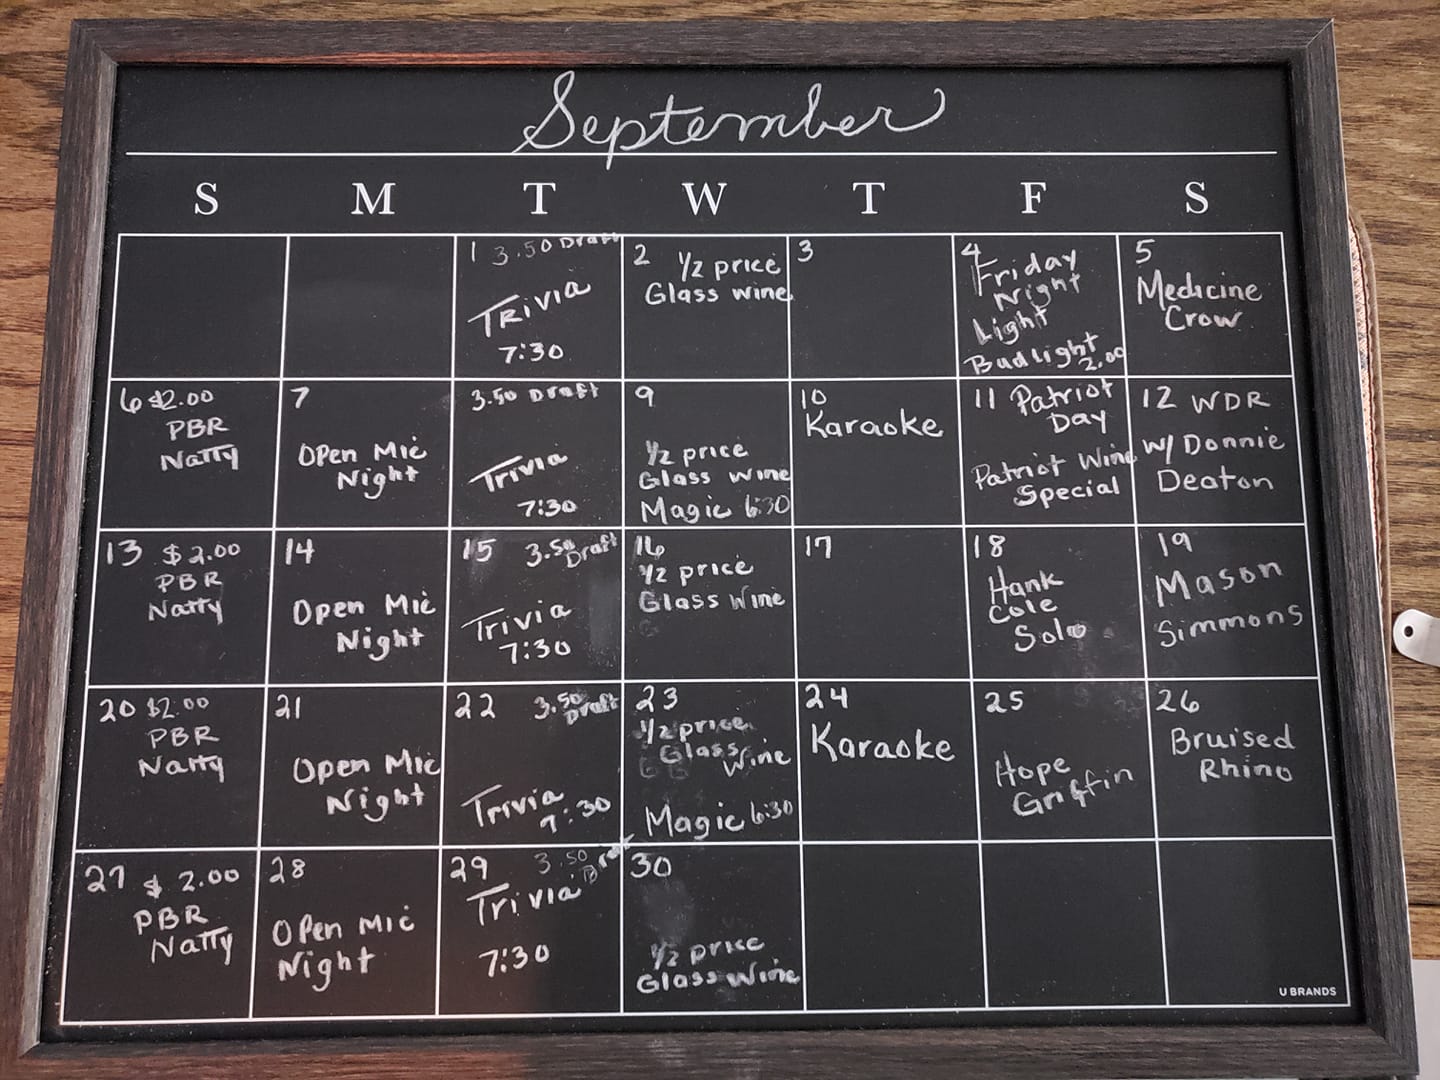 September
S M T W T F S
1 3.50 Draft
Trivia
7:30
2 1/2 price
Glass wine
3
4
Friday
Night
Light
Bud light
2.00
5
Medicine
Crow
6 $2.00
PBR
Natty
7
Open Mic
Night
3.50 Draft
Trivia
7:30
9
1/2 price
Glass wine
Magic 6:30
10
Karaoke
11 Patriot
Day
Patriot Wine
Special
12 WDR
w/ Donnie
Deaton
13 $2.00
PBR
Natty
14
Open Mic
Night
15 3.50
Draft
Trivia
7:30
16
1/2 price
Glass Wine
17
18
Hank
Cole
Solo
19
Mason
Simmons
20 $2.00
PBR
Natty
21
Open Mic
Night
22 3.50
Draft
Trivia
7:30
23
1/2 price
Glass
Wine
Magic 6:30
24
Karaoke
25
Hope
Griffin
26
Bruised
Rhino
27 $2.00
PBR
Natty
28
Open Mic
Night
29 3.50
Draft
Trivia
7:30
30
1/2 price
Glass Wine
U BRANDS